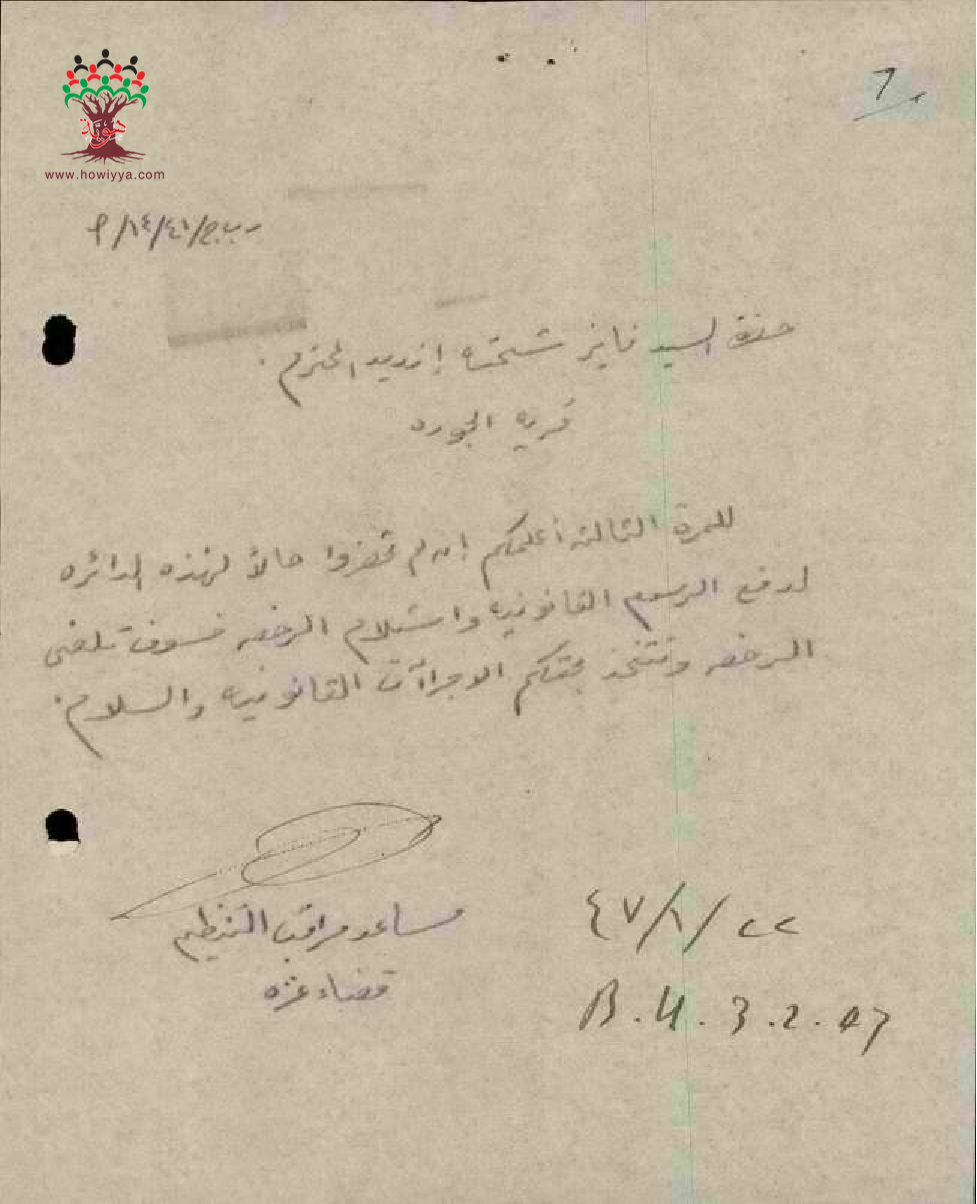 7
هوية
www.howiyya.com
ر ب ج/٤١/١٤/م
حضرة السيد فايز شحته افندي المحترم.
قرية الجوره
للمرة الثالثه أعلمكم إن لم تحضروا حالاً لهذه الدائره
لدفع الرسوم القانونيه واستلام الرخصه فسوف تلغى
الرخصه ونتخذ بحقكم الاجراآت القانونيه والسلام.
مساعد مراقب التنظيم
قضاء غزه
٤٧/١/٢٢
B.U. 3.2.47